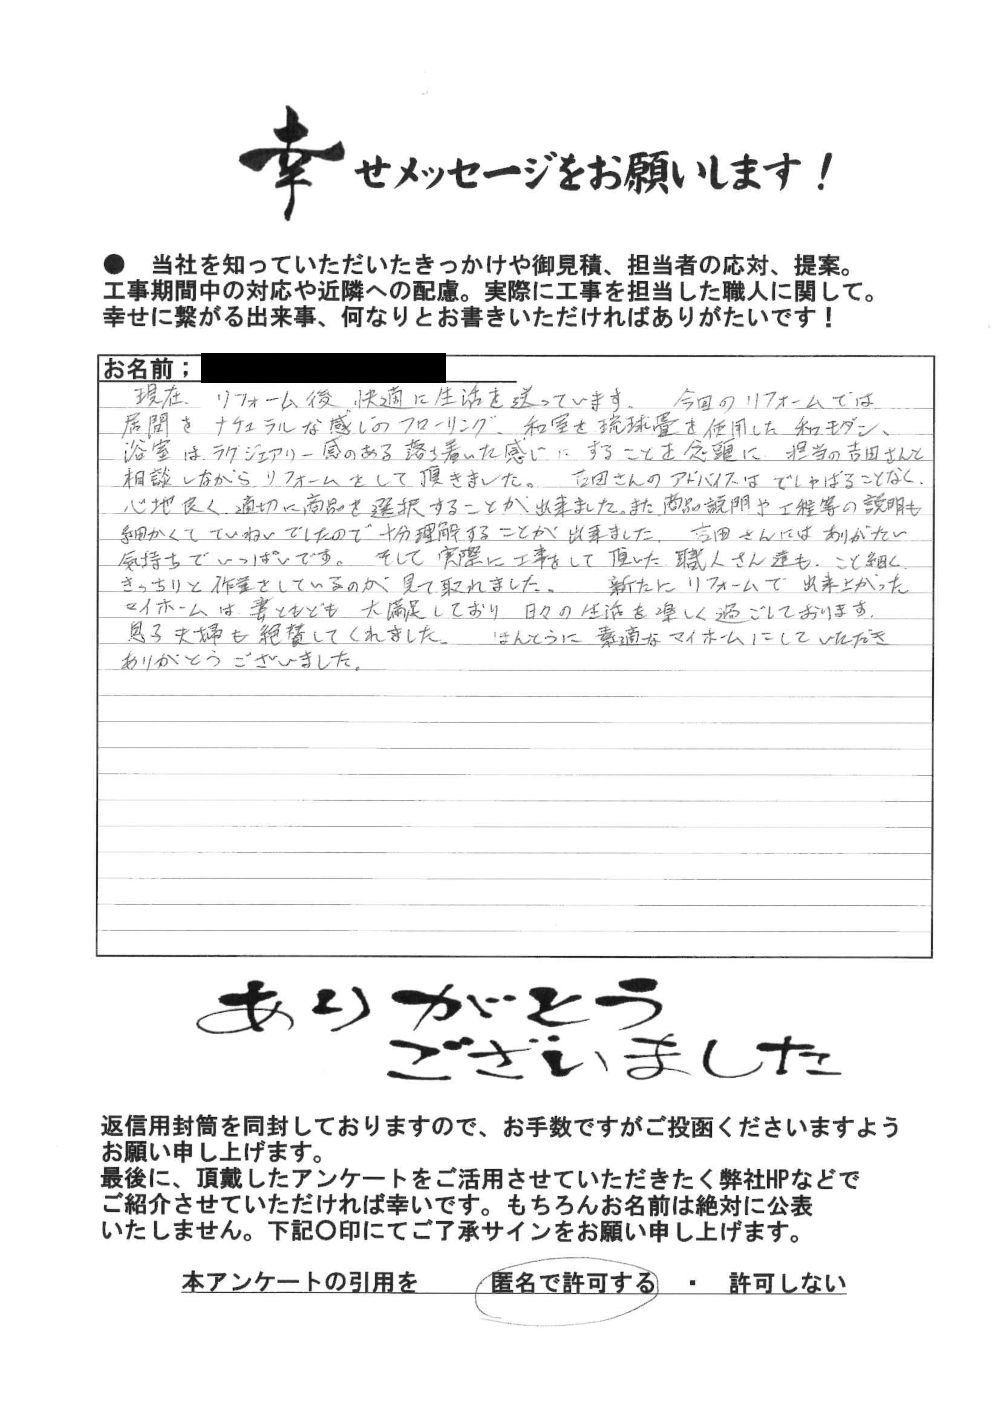 幸せメッセージをお願いします！
● 当社を知っていただいたきっかけや御見積、担当者の応対、提案。
工事期間中の対応や近隣への配慮。実際に工事を担当した職人に関して。
幸せに繋がる出来事、何なりとお書きいただければありがたいです！
お名前；
現在、リフォーム後 快適に生活を送っています。 今回のリフォームでは
居間をナチュラルな感じのフローリング、和室を琉球畳を使用した和モダン、
浴室はラグジュアリー感のある落ち着いた感じにすることを念頭に 担当の吉田さんと
相談しながらリフォームをして頂きました。 吉田さんのアドバイスはでしゃばることなく、
心地良く、適切に商品を選択することが出来ました。また商品説明や工程等の説明も
細かくていねいでしたので十分理解することが出来ました。 吉田さんにはありがたい
気持ちでいっぱいです。 そして実際に工事をして頂いた職人さん達も、こと細く
きっちりと作業をしているのが見て取れました。 新たにリフォームで出来上がった
マイホームは妻ともども大満足しており日々の生活を楽しく過ごしております。
息子夫婦も絶賛してくれました。 ほんとうに素適なマイホームにしていただき
ありがとうございました。
ありがとう
ございました
返信用封筒を同封しておりますので、お手数ですがご投函くださいますよう
お願い申し上げます。
最後に、頂戴したアンケートをご活用させていただきたく弊社HPなどで
ご紹介させていただければ幸いです。もちろんお名前は絶対に公表
いたしません。下記〇印にてご了承サインをお願い申し上げます。
本アンケートの引用を 匿名で許可する ・ 許可しない